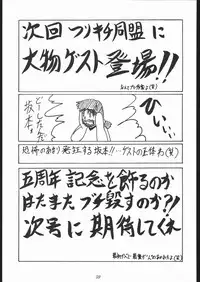 次回 フリキチ同盟 に
大物ゲスト登場!!
ひぃぃ…
どーした
坂本。
恐怖のあまり発狂する坂本!!…ゲストの正体わ(笑)
五周年記念を飾るのか
はたまたブチ毀すのか!?
次号に期待してくれ